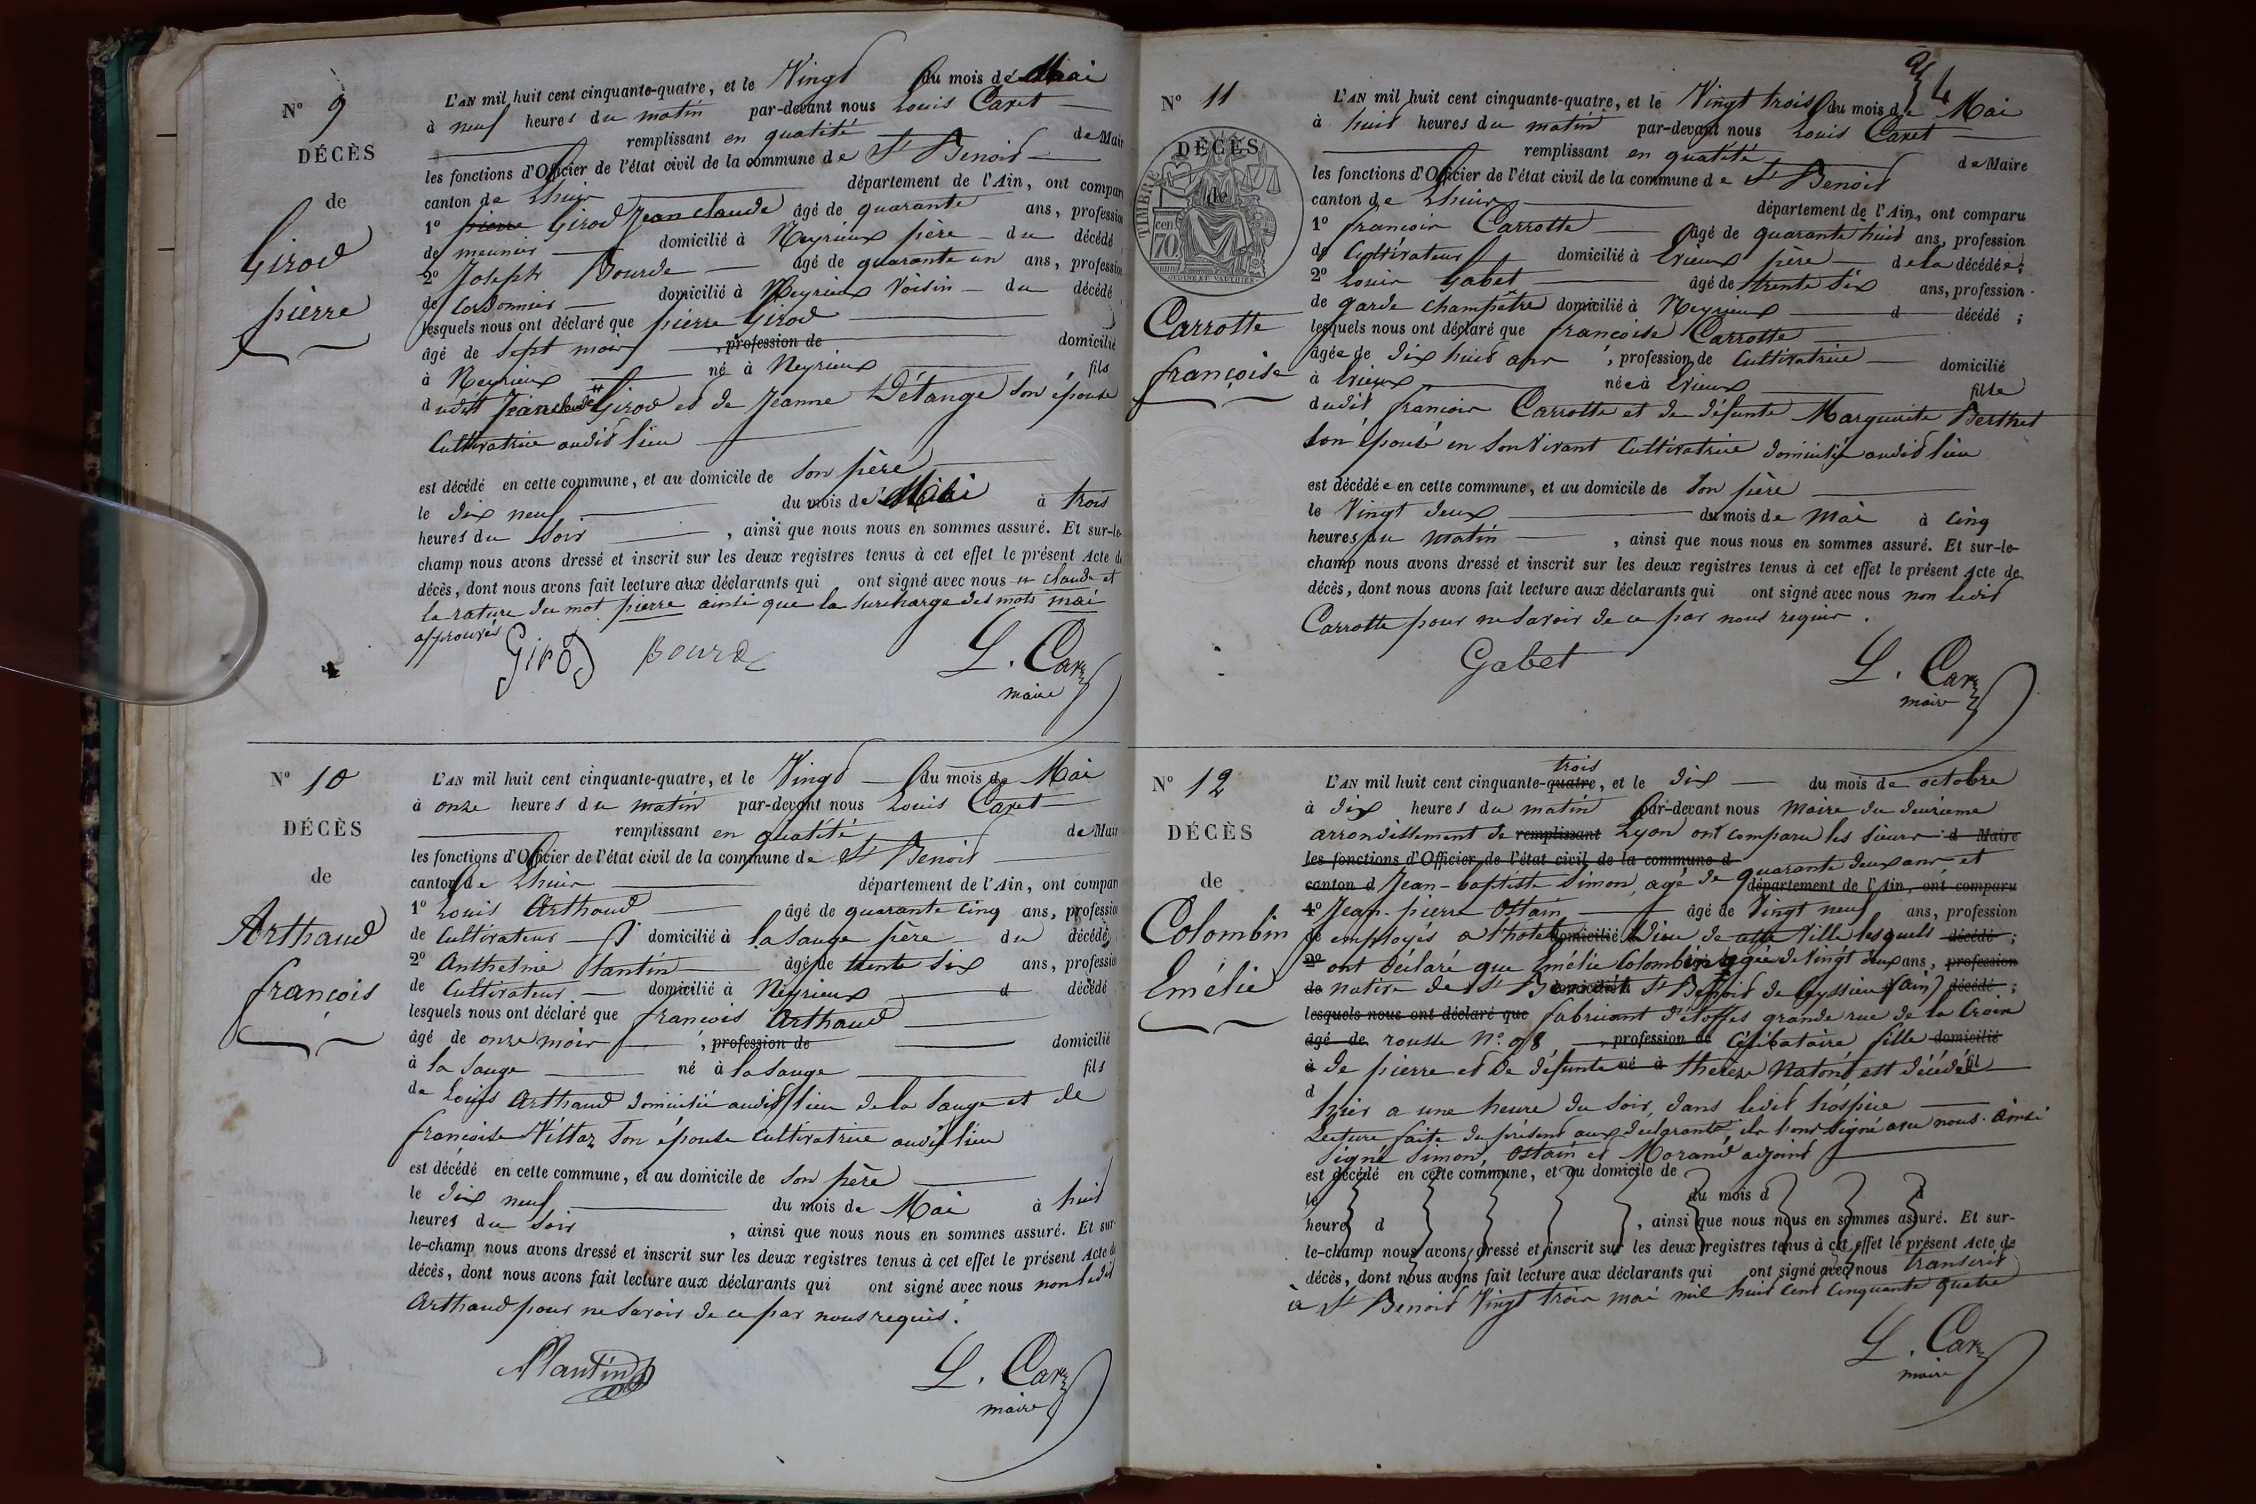 N° 9
DÉCÈS
de
Girod
pierre
L'AN mil huit cent cinquante-quatre, et le Vingt du mois de Mai
à neuf heures du matin par-devant nous Louis Caret
remplissant en qualité de Mair
les fonctions d'Officier de l'état civil de la commune de St Benoit
canton de Lhuis département de l'Ain, ont compar
1° pierre Girod Jean claude âgé de quarante ans, profession
de meunier domicilié à Neyrieux père du décédé
2° Joseph Bourde âgé de quarante un ans, profession
de Cordonnier domicilié à Neyrieux Voisin du décédé
lesquels nous ont déclaré que pierre Girod
âgé de Sept mois , profession de domicilié
à Neyrieux né à Neyrieux fils
dudit Jean claude Girod et de Jeanne Détange son épouse
Cultivatrice audit lieu
est décédé en cette commune, et au domicile de son père
le dix neuf du mois de Mai à trois
heures du soir , ainsi que nous nous en sommes assuré. Et sur-le-
champ nous avons dressé et inscrit sur les deux registres tenus à cet effet le présent Acte de
décès, dont nous avons fait lecture aux déclarants qui ont signé avec nous claude et
la rature du mot pierre ainsi que la surcharge des mots mai
approuvés
Girod Bourde L. Car
maire
N° 10
DÉCÈS
de
Arthaud
françois
L'AN mil huit cent cinquante-quatre, et le Vingt du mois de Mai
à onze heures du matin par-devant nous Louis Caret
remplissant en qualité de Mair
les fonctions d'Officier de l'état civil de la commune de St Benoit
canton de Lhuis département de l'Ain, ont compar
1° Louis Arthaud âgé de quarante cinq ans, profession
de Cultivateur domicilié à la Sauge père du décédé
2° Anthelme Plantin âgé de trente six ans, profession
de Cultivateur domicilié à Neyrieux d décédé
lesquels nous ont déclaré que françois Arthaud
âgé de onze mois , profession de domicilié
à la Sauge né à la Sauge fils
de Louis Arthaud domicilié audit lieu de la Sauge et de
françoise Vittoz son épouse cultivatrice audit lieu
est décédé en cette commune, et au domicile de son père
le dix neuf du mois de Mai à huit
heures du soir , ainsi que nous nous en sommes assuré. Et sur-
le-champ nous avons dressé et inscrit sur les deux registres tenus à cet effet le présent Acte de
décès, dont nous avons fait lecture aux déclarants qui ont signé avec nous non ledit
Arthaud pour ne savoir de ce par nous requis.
Plantin L. Car
maire
N° 11
DÉCÈS
de
TIMBRE
cen
70.
Carrotte
françoise
L'AN mil huit cent cinquante-quatre, et le Vingt trois du mois de Mai
à huit heures du matin par-devant nous Louis Caret
remplissant en qualité de Maire
les fonctions d'Officier de l'état civil de la commune de St Benoit
canton de Lhuis département de l'Ain, ont comparu
1° françois Carrotte âgé de quarante huit ans, profession
de Cultivateur domicilié à Evieux père de la décédée;
2° Louis Gabet âgé de trente six ans, profession
de garde champêtre domicilié à Neyrieux d décédé ;
lesquels nous ont déclaré que françoise Carrotte
âgée de dix huit ans , profession de Cultivatrice domicilié
à Evieux née à Evieux fille
dudit françois Carrotte et de défunte Marguerite Berthet
son épouse en son vivant Cultivatrice domiciliée audit lieu
est décédée en cette commune, et au domicile de son père
le Vingt deux du mois de mai à cinq
heures du matin , ainsi que nous nous en sommes assuré. Et sur-le-
champ nous avons dressé et inscrit sur les deux registres tenus à cet effet le présent Acte de
décès, dont nous avons fait lecture aux déclarants qui ont signé avec nous non ledit
Carrotte pour ne savoir de ce par nous requis.
Gabet L. Car
maire
N° 12
DÉCÈS
de
Colombin
Emélie
trois
L'AN mil huit cent cinquante-quatre, et le dix du mois de octobre
à dix heures du matin par-devant nous Maire du deuxieme
arrondissement de remplissant Lyon ont comparu les sieurs d Maire
les fonctions d'Officier de l'état civil de la commune d
canton d Jean-baptiste Simon, agé de quarante deux ans et département de l'Ain, ont comparu
1° Jean-pierre Ostain âgé de Vingt neuf ans, profession
de employés a l'hôtel domicilié à dieu de cette Ville lesquels décédé ;
2° ont déclaré que Emélie Colombin agée de vingt deux ans, profession
de native de St Benoit domicilié à St Benoit de Ceyssieu (ain) décédé ;
lesquels nous ont déclaré que fabricant d'étoffes grande rue de la Croix
âgé de rousse N° 98 , profession de Célibataire fille domicilié
à de pierre et de défunte né à thérèze Natond est décédée fil
d
hier a une heure du soir, dans ledit hospice
Lecture faite du présent aux déclarants, ils l'ont signé avec nous. ainsi
Signé Simon, Ostain et Morand adjoint
est décédé en cette commune, et au domicile de
le du mois d à
heure d , ainsi que nous nous en sommes assuré. Et sur-
le-champ nous avons dressé et inscrit sur les deux registres tenus à cet effet le présent Acte de
décès, dont nous avons fait lecture aux déclarants qui ont signé avec nous transcrit
à St Benoit Vingt trois mai mil huit cent cinquante quatre
L. Car
maire